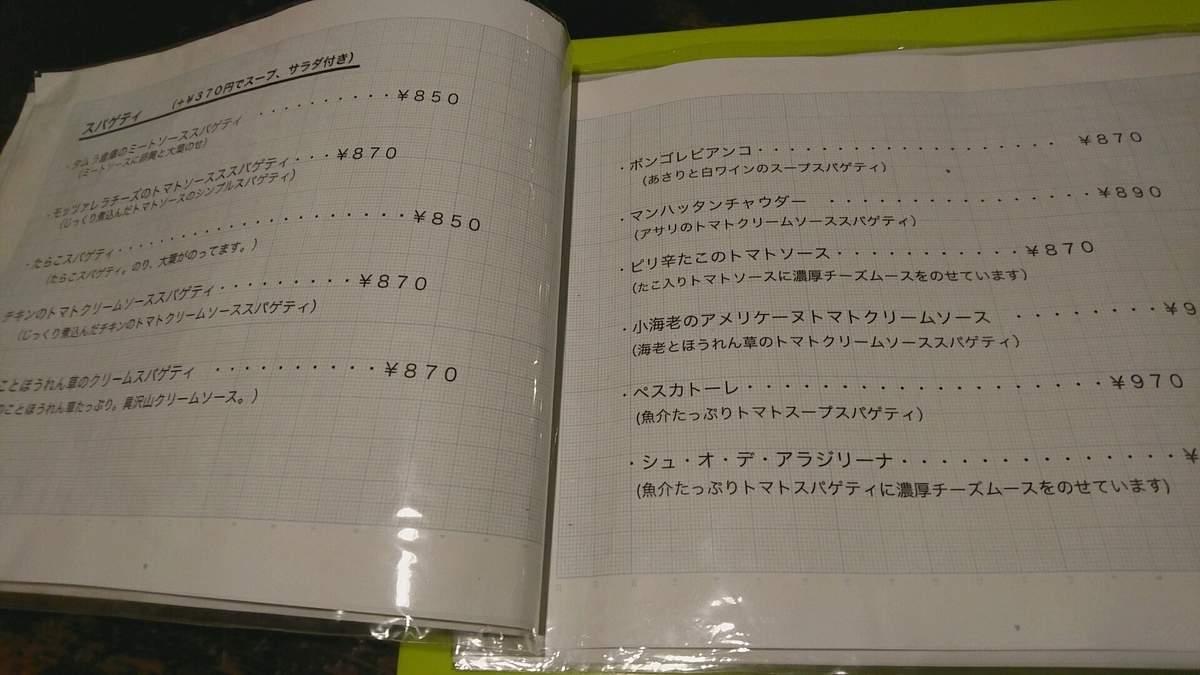 スパゲティ　(+¥370円でスープ、サラダ付き)
・タムラ倉庫のミートソーススパゲティ ・・・・・・・・・¥850
(ミートソースに卵黄と大葉のせ)
・モッツァレラチーズのトマトソーススパゲティ・・・¥870
(じっくり煮込んだトマトソースのシンプルスパゲティ)
・たらこスパゲティ・・・・・・・・・・・・・・・・・・¥850
(たらこスパゲティ。のり、大葉がのってます。)
チキンのトマトクリームソーススパゲティ・・・・・・・・・¥870
(じっくり煮込んだチキンのトマトクリームソーススパゲティ)
ことほうれん草のクリームスパゲティ ・・・・・・・・・・¥870
のことほうれん草たっぷり。具沢山クリームソース。)
・ボンゴレビアンコ・・・・・・・・・・・・・・・・・・ ¥870
(あさりと白ワインのスープスパゲティ)
・マンハッタンチャウダー ・・・・・・・・・・・・・・・・¥890
(アサリのトマトクリームソーススパゲティ)
・ピリ辛たこのトマトソース・・・・・・・・・・・¥870
(たこ入りトマトソースに濃厚チーズムースをのせています)
・小海老のアメリケーヌトマトクリームソース ・・・・・・・・¥9
(海老とほうれん草のトマトクリームソーススパゲティ)
・ペスカトーレ・・・・・・・・・・・・・・・・・・・¥970
(魚介たっぷりトマトスープスパゲティ)
・シュ・オ・デ・アラジリーナ・・・・・・・・・・・・・・¥
(魚介たっぷりトマトスパゲティに濃厚チーズムースをのせています)